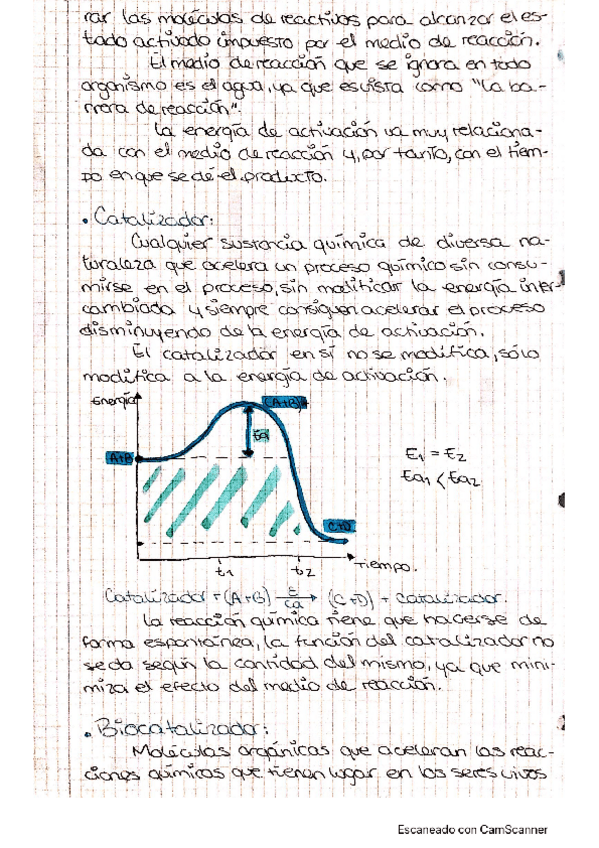 rar las moléculas de reactivos para alcanzar el es-
tado activado impuesto por el medio de reacción.
El medio de reacción que se ignora en todo
organismo es el agua, ya que es vista como "La ba-
rrera de reacción".
La energía de activación va muy relaciona-
da con el medio de reacción y, por tanto, con el tiem-
po en que se dé el producto.
• Catalizador:
Cualquier sustancia química de diversa na-
turaleza que acelera un proceso químico sin consu-
mirse en el proceso, sin modificar la energía inter-
cambiada y siempre consiguen acelerar el proceso
disminuyendo de la energía de activación.
El catalizador en sí no se modifica, sólo
modifica a la energía de activación.
Energía
(A+B)*
Ea
A+B
E1 = E2
Ea1 < Ea2
C+D
t1
t2
Tiempo.
Catalizador + (A+B) → (C+D) + catalizador.
La reacción química tiene que hacerse de
forma espontánea, la función del catalizador no
se da según la cantidad del mismo, ya que mini-
miza el efecto del medio de reacción.
• Biocatalizador:
Moléculas orgánicas que aceleran las reac-
ciones químicas que tienen lugar en los seres vivos
Escaneado con CamScanner